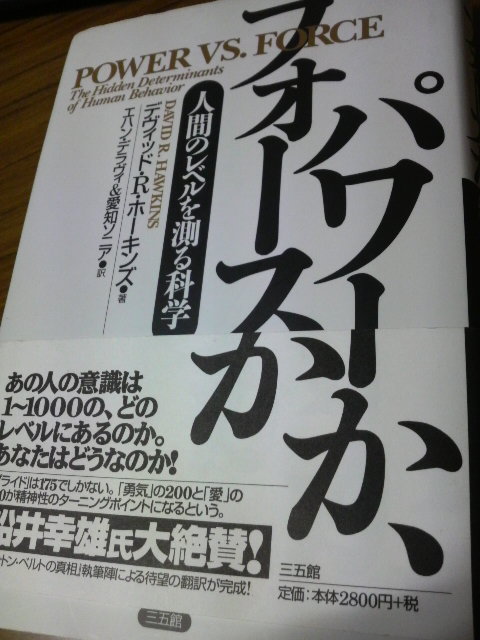 POWER VS. FORCE
The Hidden Determinants
of Human Behavior
パワーか、
フォースか
人間のレベルを測る科学
DAVID R. HAWKINS
デヴィッド・R・ホーキンズ●著
エハン・デラヴィ&愛知ソニア●訳
あの人の意識は
1~1000の、どの
レベルにあるのか。
あなたはどうなのか!
プライド」は175でしかない。「勇気」の200と「愛」の
0が精神性のターニングポイントになるという。
船井幸雄氏大絶賛!
トン・ベルトの真相」執筆陣による待望の翻訳が完成!
三五館
三五館
定価:本体2800円+税